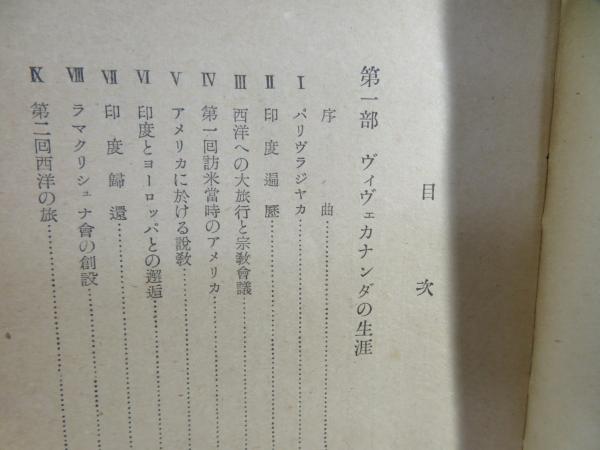 目次
第一部 ヴィヴェカナンダの生涯
序曲
Ⅰ パリヴラジヤカ
Ⅱ 印度遍歷
Ⅲ 西洋への大旅行と宗教會議
Ⅳ 第一回訪米當時のアメリカ
Ⅴ アメリカに於ける說教
Ⅵ 印度とヨーロッパとの邂逅
Ⅶ 印度歸還
Ⅷ ラマクリシュナ會の創設
Ⅸ 第二回西洋の旅